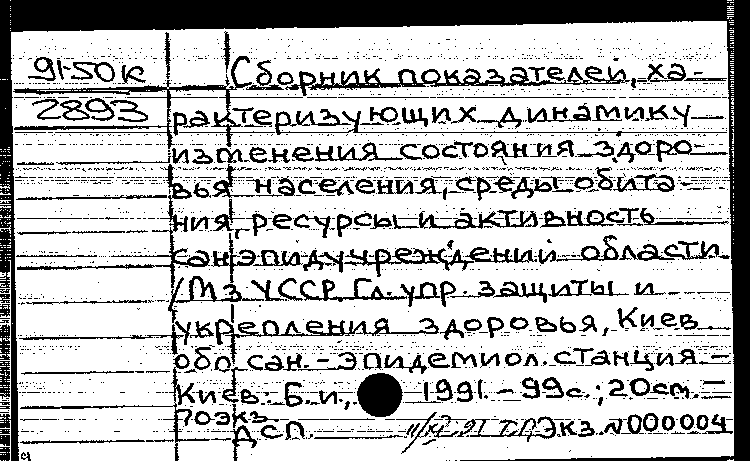 91-50к
2893
Сборник показателей, ха-
рактеризующих динамику
изменения состояния здоро-
вья населения, среды обита-
ния, ресурсы и активность
санэпидучреждений области
/ МЗ УССР, Гл. упр. защиты и
укрепления здоровья, Киев.
обл. сан.-эпидемиол. станция.-
Киев: Б. и., 1991.-99с.; 20см.-
70экз
ДСП. Экз. №000004